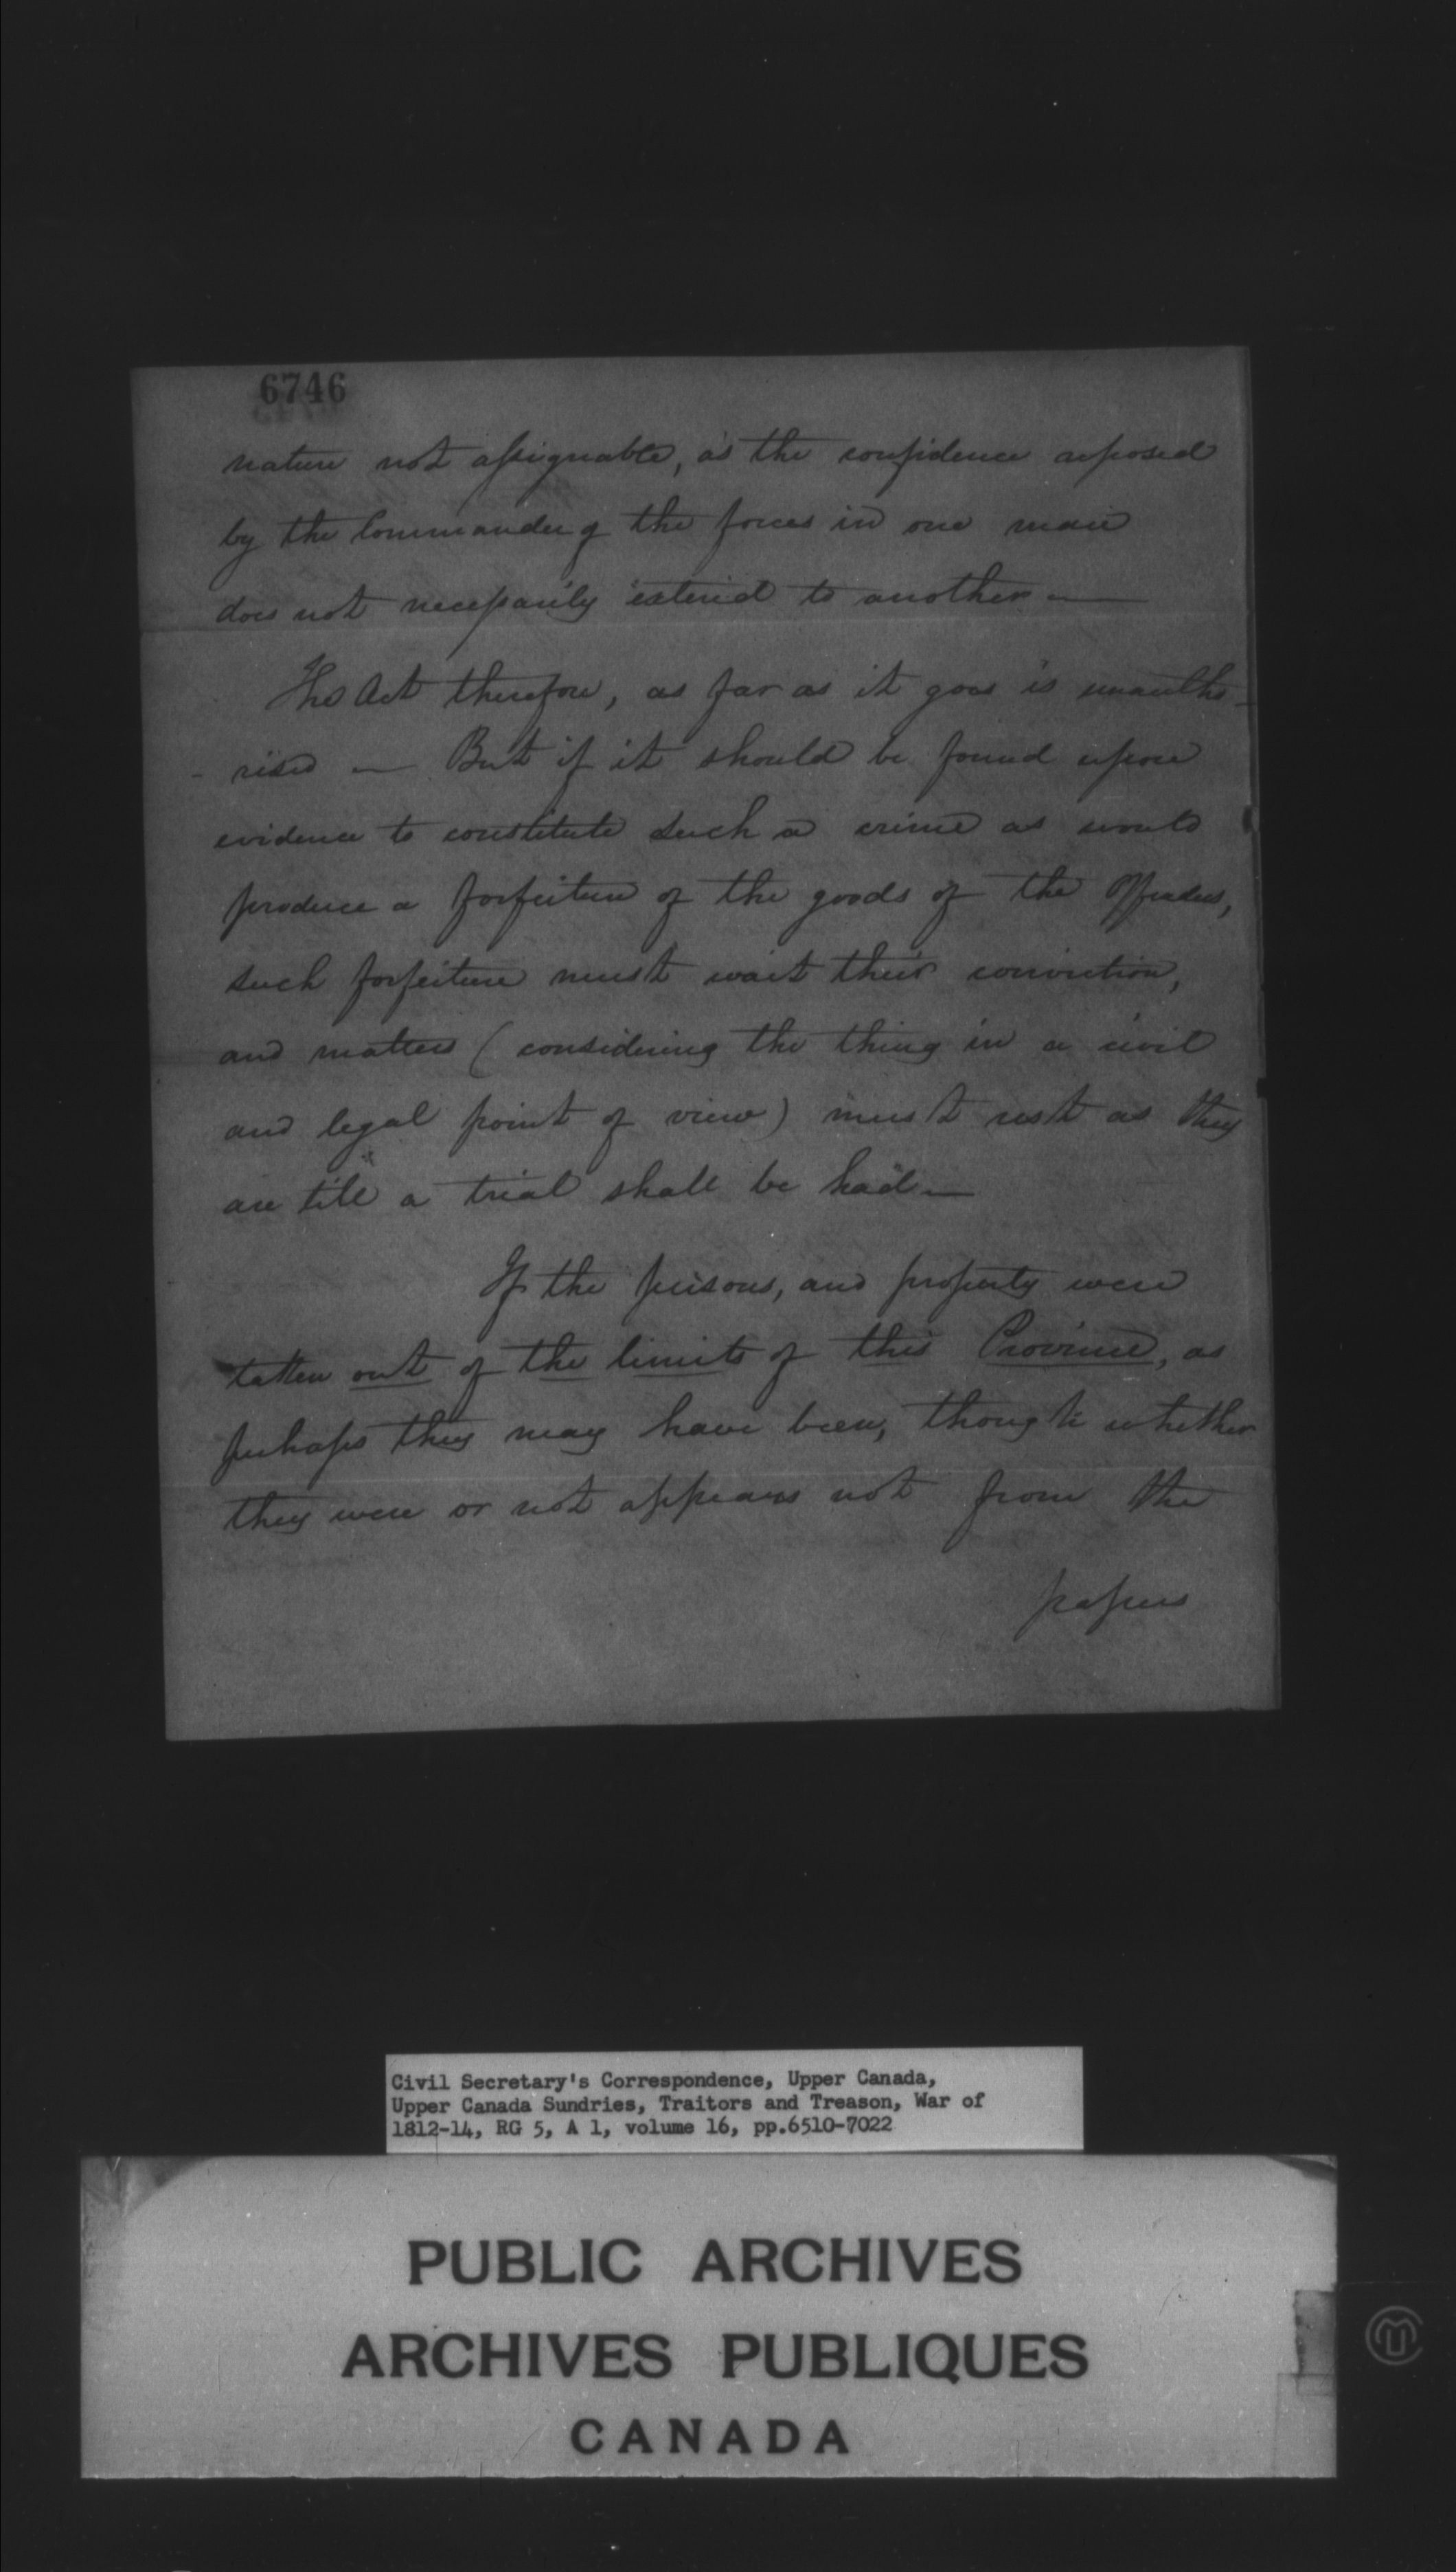 6746
nature not assignable, as the confidence reposed
by the Commander of the forces in one man
does not necessarily extend to another —
The Act therefore, as far as it goes is unautho-
- rised — But if it should be found upon
evidence to constitute such a crime as would
produce a forfeiture of the goods of the Offenders,
such forfeiture must wait their conviction,
and matters (considering the thing in a civil
and legal point of view) must rest as they
are till a trial shall be had —
If the persons, and property were
taken out of the limits of this Province, as
perhaps they may have been, though whether
they were or not appears not from the
papers
Civil Secretary's Correspondence, Upper Canada,
Upper Canada Sundries, Traitors and Treason, War of
1812-14, RG 5, A 1, volume 16, pp.6510-7022
PUBLIC ARCHIVES
ARCHIVES PUBLIQUES
CANADA